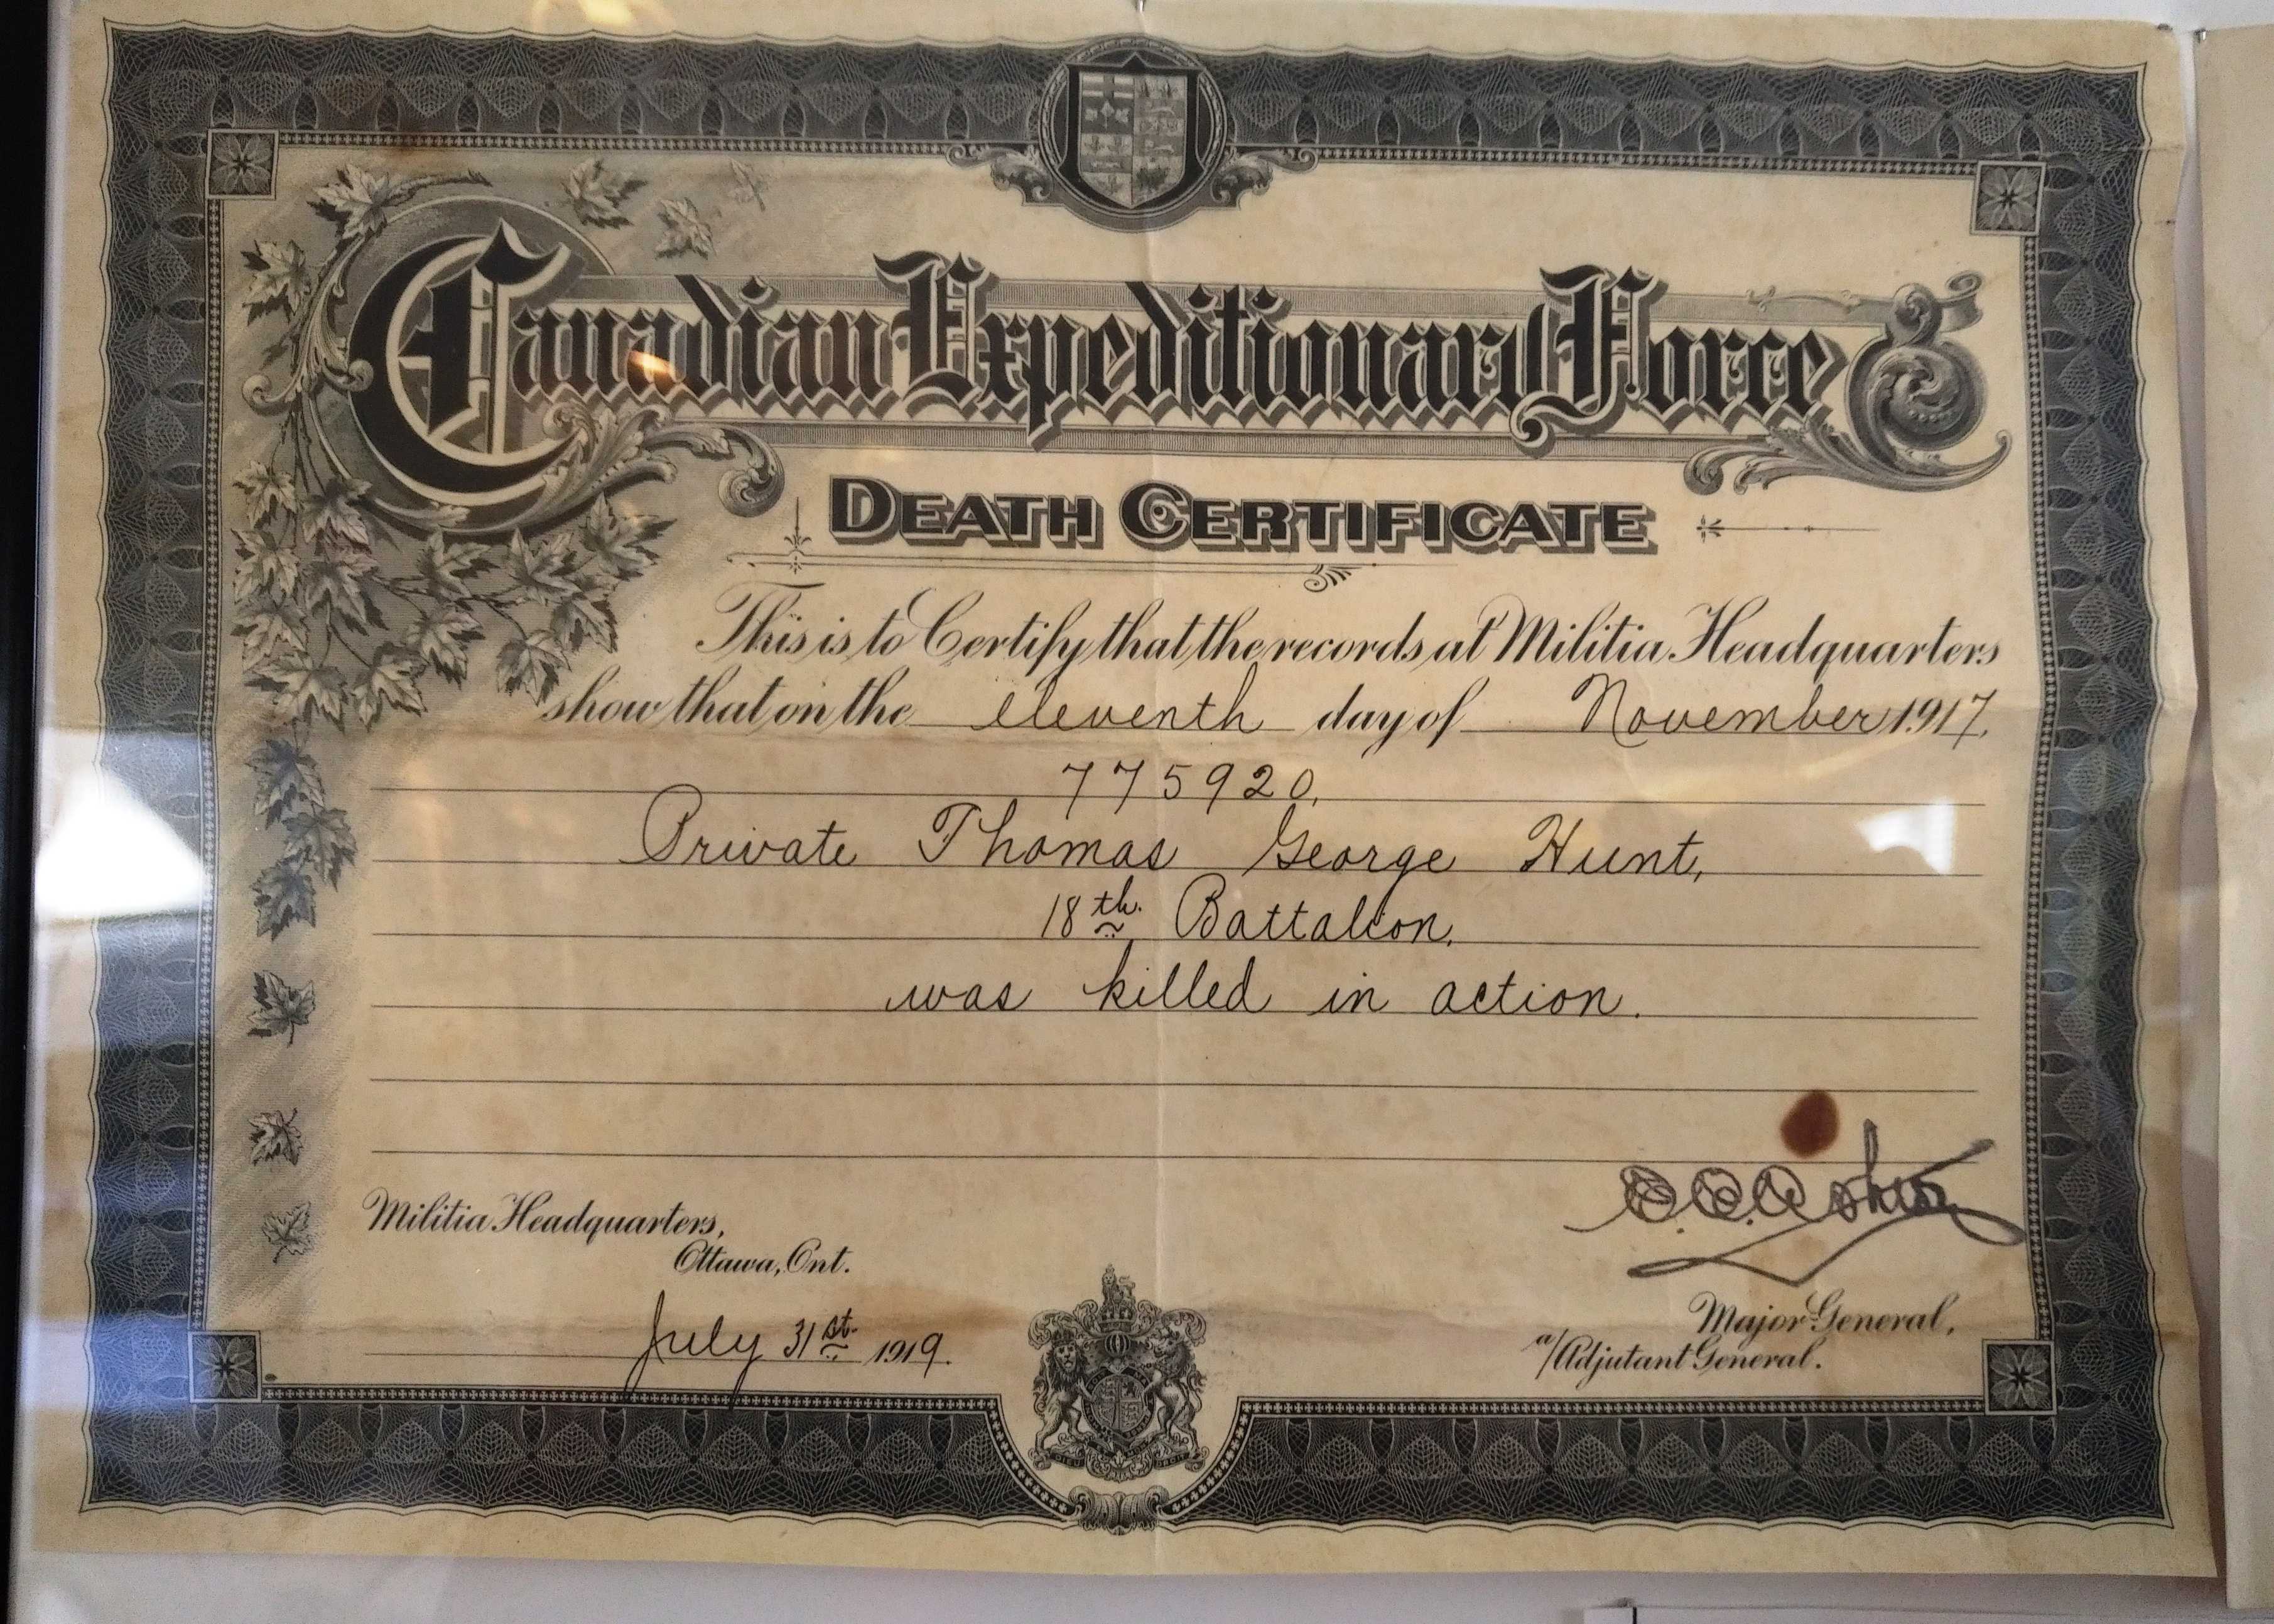 Canadian Expeditionary Force
DEATH CERTIFICATE
This is to Certify that the records at Militia Headquarters
show that on the eleventh day of November 1917.
775920,
Private Thomas George Hunt,
18th Battalion,
was killed in action.
Militia Headquarters,
Ottawa, Ont.
July 31st 1919.
Major General,
a/Adjutant General.